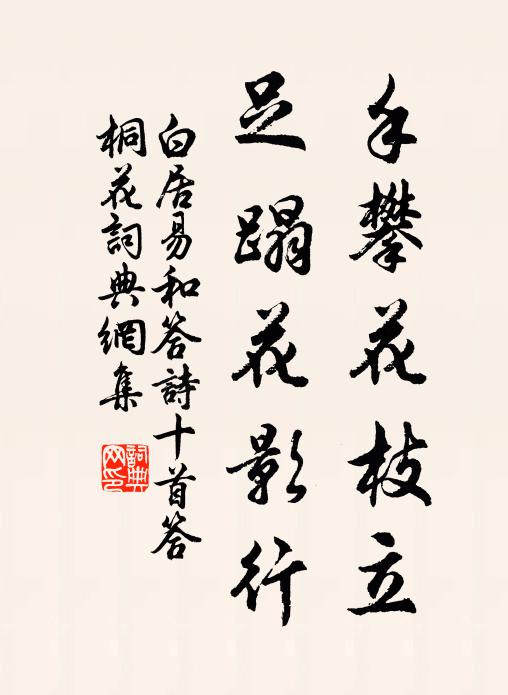 手攀花枝立
足蹋花影行
白居易和答詩十首答
桐花詞典網集
詞典网印